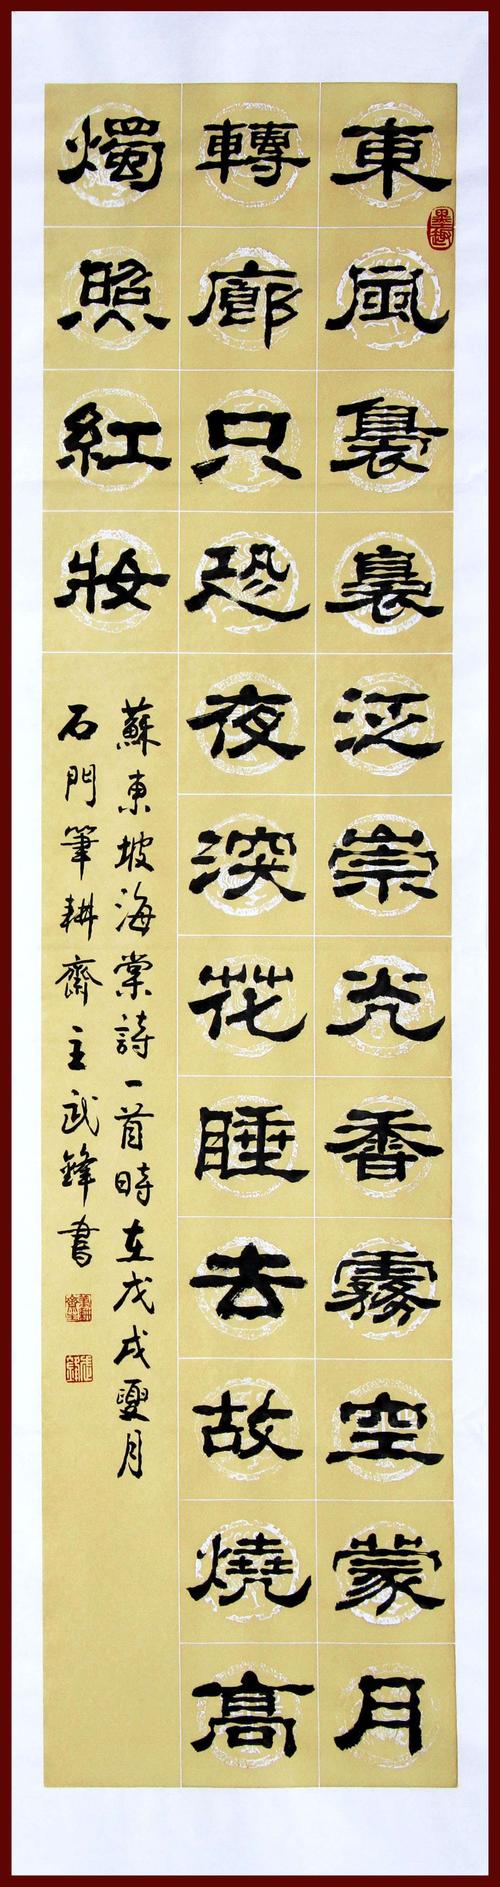 東風裊裊泛崇光香霧空蒙月
轉廊只恐夜深花睡去故燒高
燭照紅妝
蘇東坡海棠詩一首時在戊戌夏月
石門筆耕齋主武鋒書
墨趣